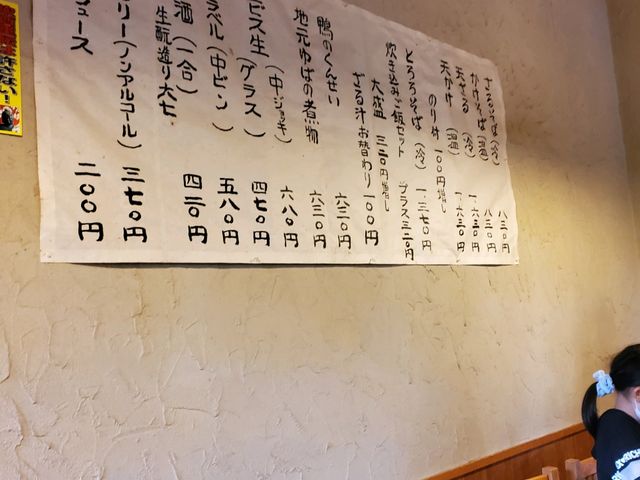 ざるそば（冷） 八三〇円
かけそば（温） 八三〇円
天ざる（冷） 一、六三〇円
天かけ（温） 一、六三〇円
のり付 一〇〇円増し
とろろそば（冷） 一、三七〇円
炊き込みご飯セット プラス三二〇円
大盛 三二〇円増し
ざる汁お替わり 一〇〇円
鴨のくんせい 六三〇円
地元ゆばの煮物 六三〇円
（中ジョッキ） 六八〇円
ビス生（グラス） 四七〇円
ラベル（中ビン） 五八〇円
酒（一合） 四三〇円
生酛造り大七
リー（ノンアルコール） 三七〇円
ュース 二〇〇円